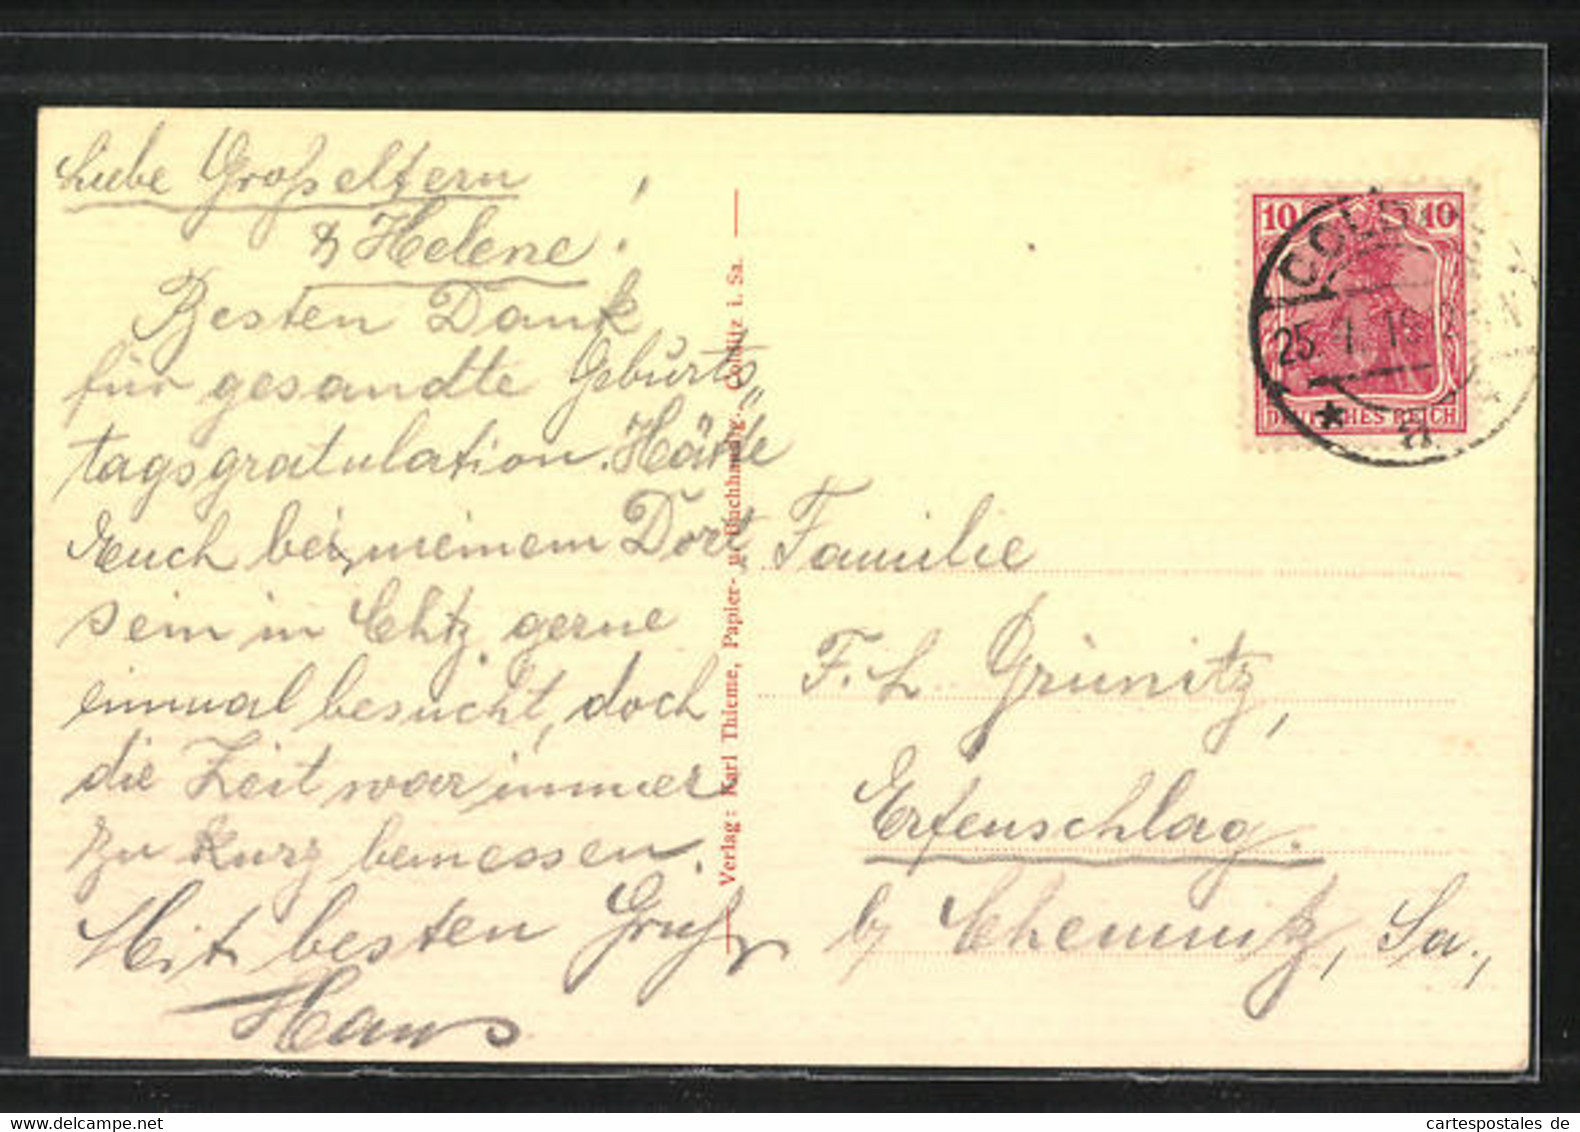 Liebe Großeltern
& Helene!
Besten Dank
für gesandte Geburts„
tagsgratulation. Hätte
Euch bei meinem Dort
sein in Chtz. gerne
einmal besucht, doch
die Zeit war immer
zu kurz bemessen.
Mit besten Gruß
Hans
Verlag: Karl Thieme, Papier- u. Buchhandlg., Colditz i. Sa.
10 10
DEUTSCHES REICH
COLD
25. 1. 19
* a
Familie
F. L. Grünitz,
Erfenschlag.
b/ Chemnitz, Sa.,
cartespostales de